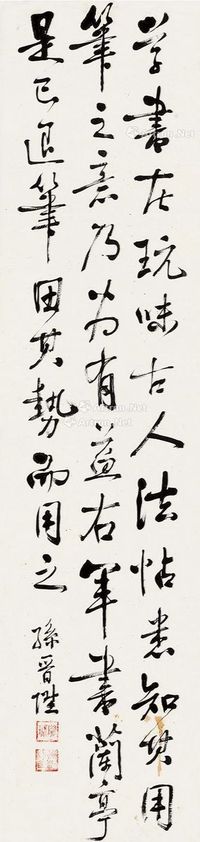 学书在玩味古人法帖悉知其用
筆之意乃为有益右军书蘭亭
是已退筆因其勢而用之
孫晋陞